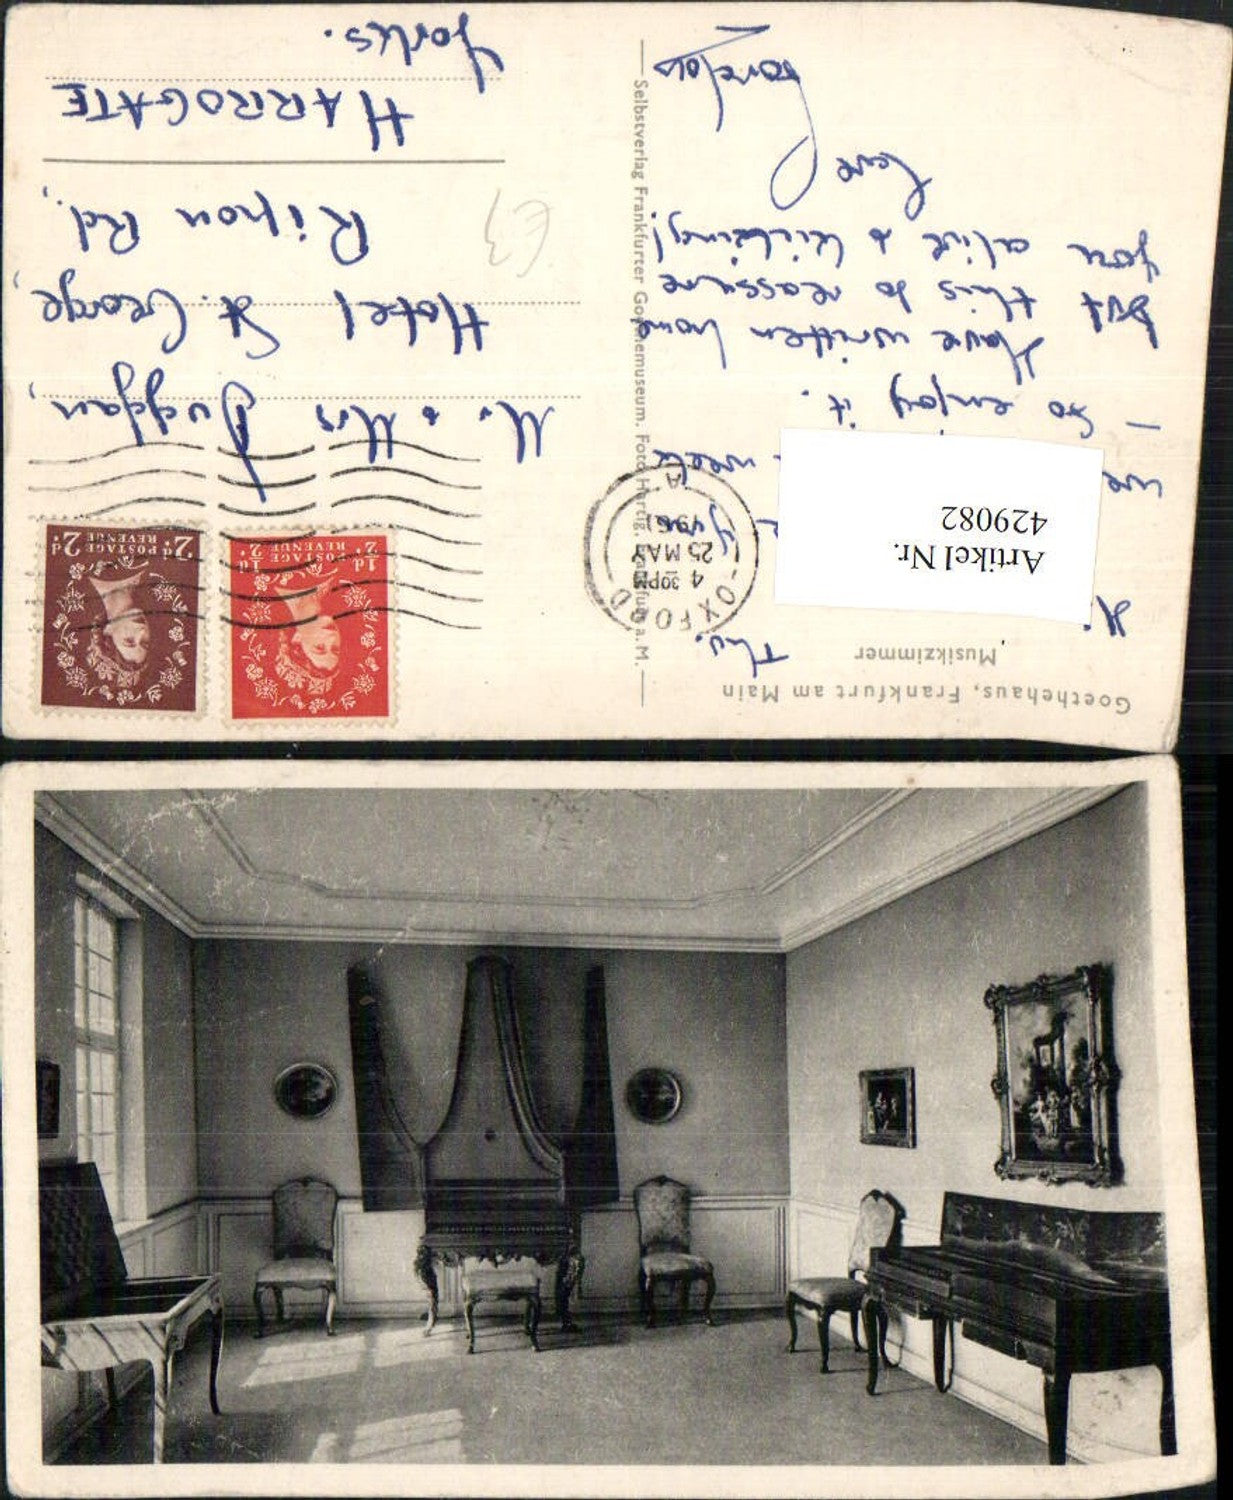 Goethehaus, Frankfurt am Main
Musikzimmer
Thu.
we week
– so enjoy it.
Have written home
but this to reassure
you alive & kicking!
Love
Selbstverlag Frankfurter Goethemuseum. Foto Hartig, Frankfurt a. M.
Artikel Nr.
429082
OXFORD
4 30PM
25 MAY
1961
A
POSTAGE
REVENUE
½d ½d
POSTAGE
REVENUE
2d 2d
Mr & Mrs Duggan,
Hotel St. George,
Ripon Rd.,
HARROGATE
Yorks.
£3